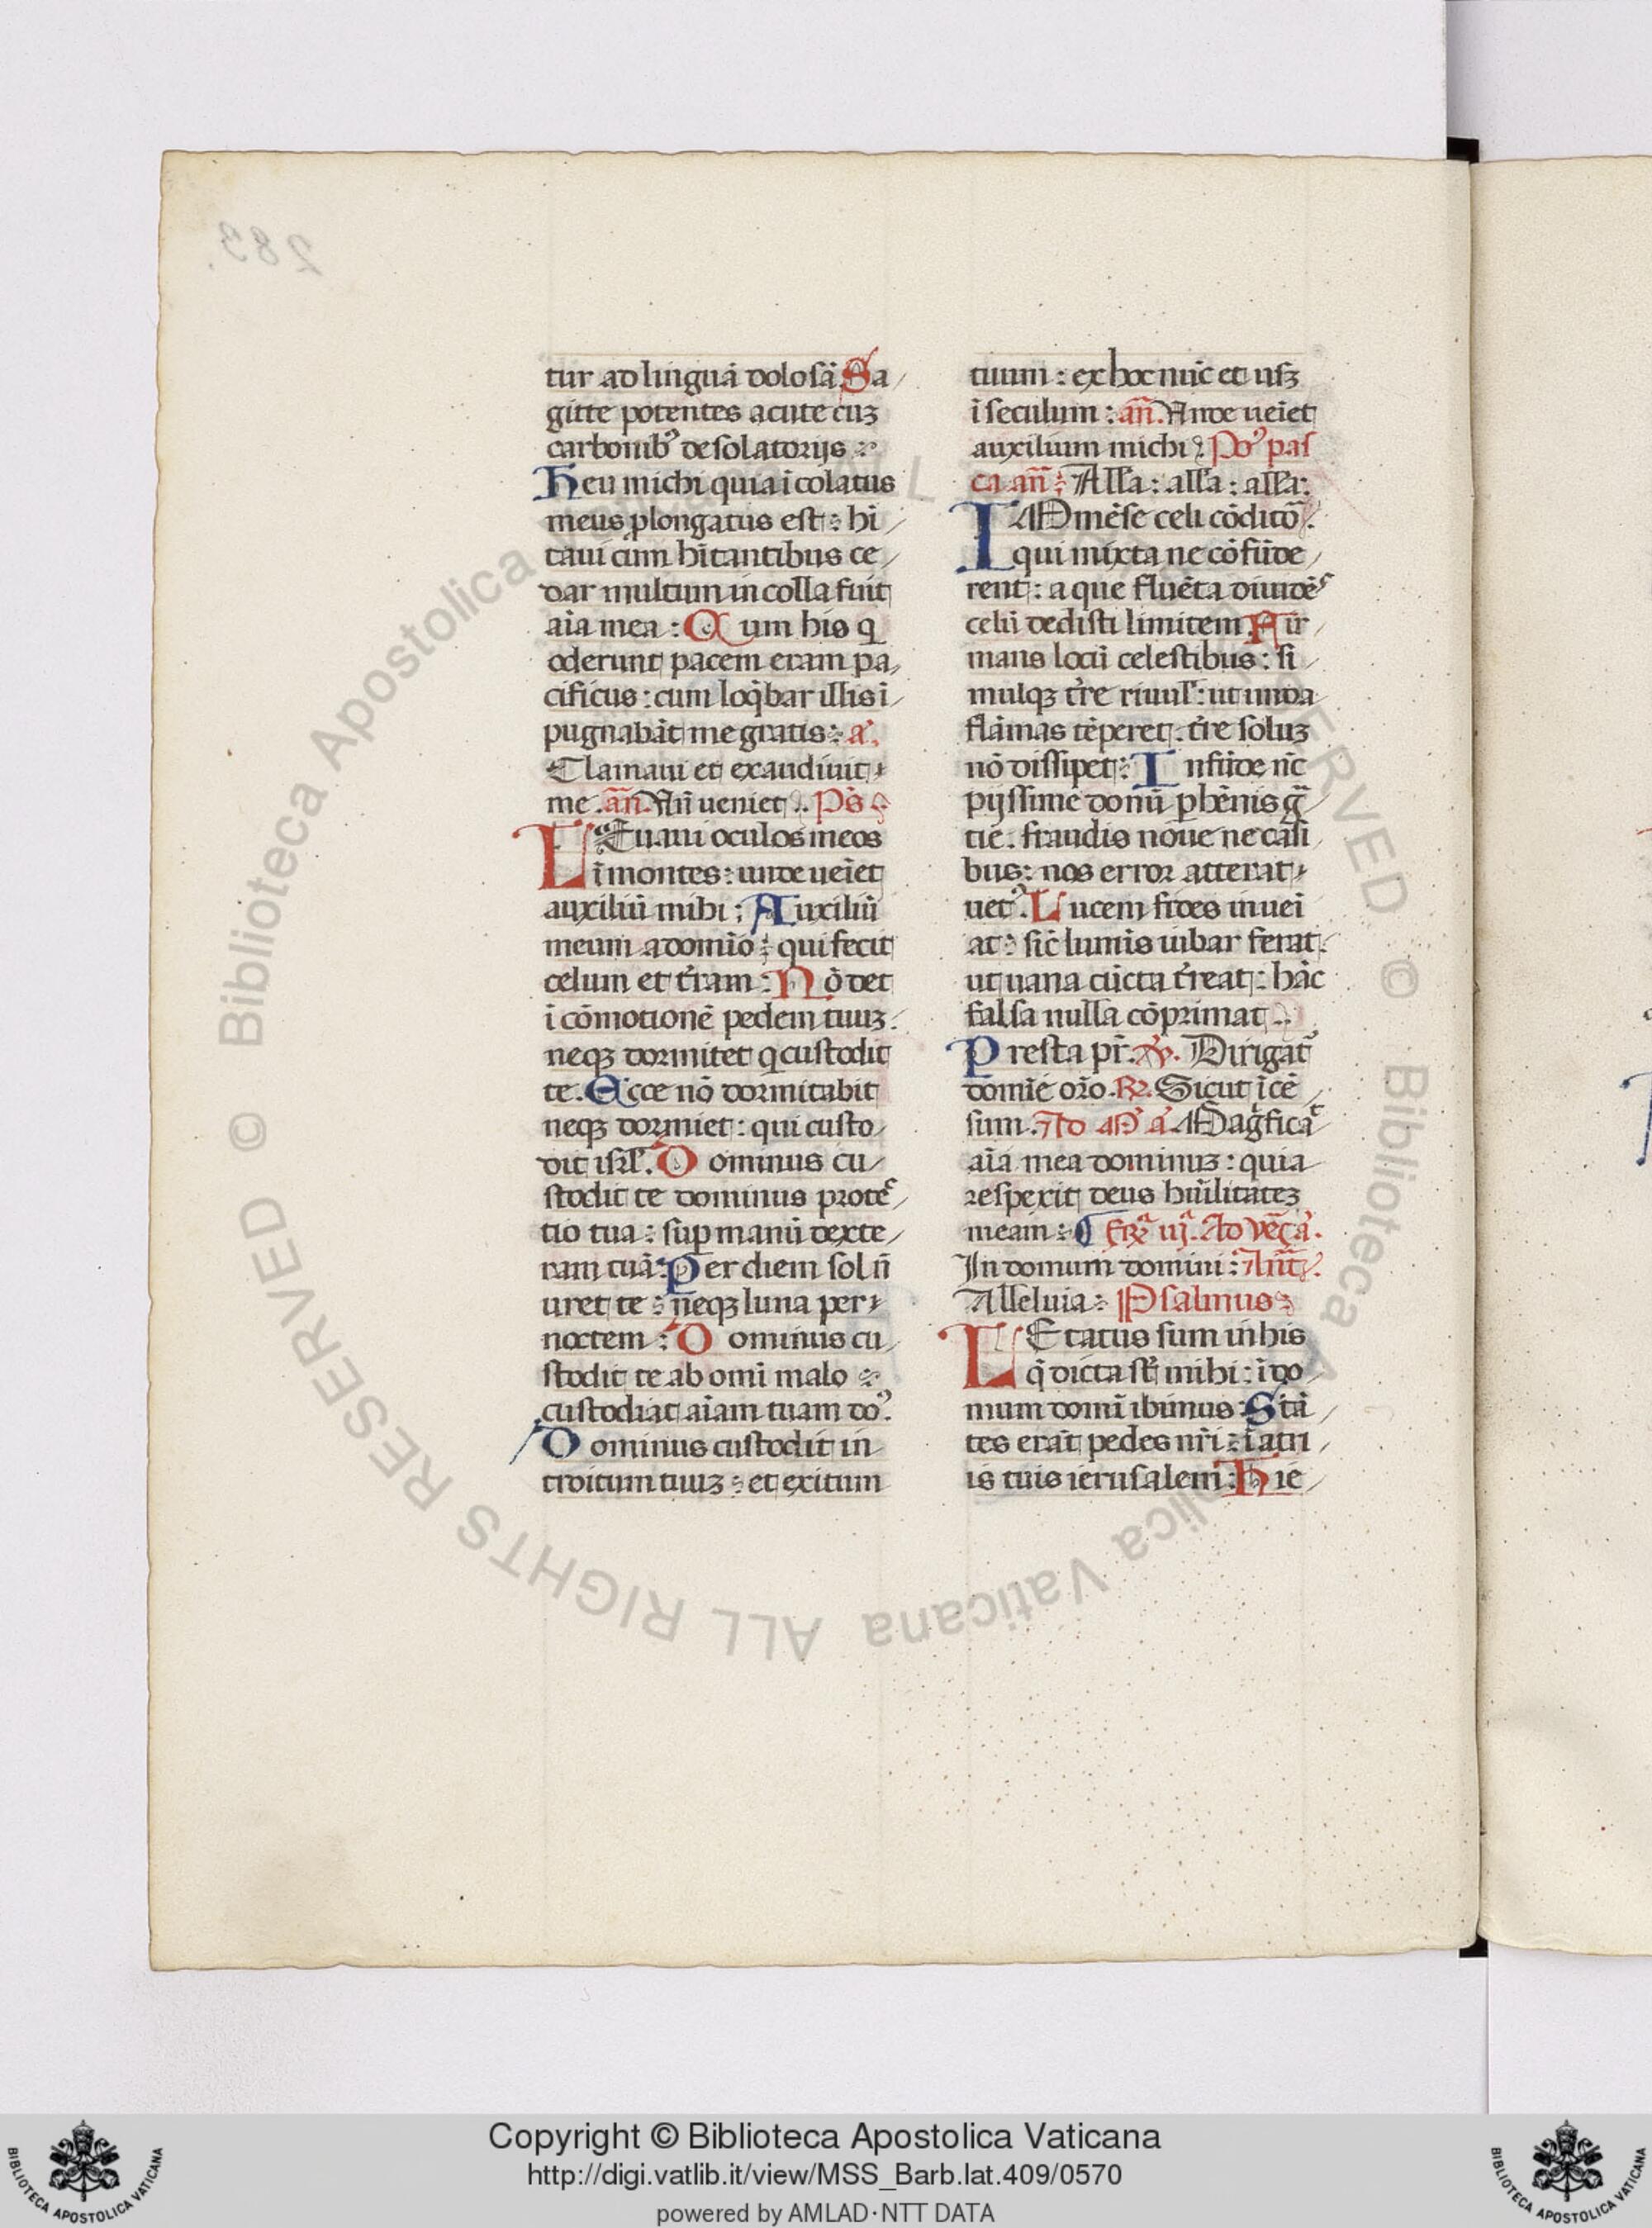 283.
tur ad linguā dolosā. Sa
gitte potentes acute cuꝫ
carbonibꝰ desolatorijs :
Heu michi quia ī colatus
meus ꝓlongatus est : hī
taui cum hītantibus ce
dar multum incolla fuit
aīa mea : Cum his q̄
oderunt pacem eram pa
cificus : cum loq̄bar illis ī
pugnabāt me gratis : a᷑.
Clamaui et exaudiuit
me. an̄. An̄ ueniet. Ps̄
LEuaui oculos meos
ī montes : unde ueīet
auxiliū mihi : Auxiliū
meum a domīo : qui fecit
celum et t̄ram : Nō det
ī cōmotionē pedem tuuꝫ :
neqꝫ dormitet q̄ custodit
te. Ecce nō dormitabit
neqꝫ dormiet : qui custo
dit isrl̄. Dominus cu
stodit te dominus prote͛c
tio tua : suꝑ manū dexte
ram tuā : Per diem sol n̄
uret te : neqꝫ luna per
noctem : Dominus cu
stodit te ab omī malo :
custodiat aīam tuam doꝰ.
Dominus custodit in
troitum tuuꝫ : et exitum
tuum : ex hoc nūc et usꝫ
ī seculum : an̄. Unde ueīet
auxilium michi : Poꝰ pas
ca an̄ : All̄a : all̄a : all̄a :
IMmēse celi cōditor̄.
qui mixta ne cōfūde
rent : a que fluēta diuidēs
celū dedisti limitem. Fir
mans locū celestibus : si
mulqꝫ t̄re riuul᷑ : ut unda
flāmas tēperet. t̄re soluꝫ
nō dissipet : Infūde nc̄
pijssime donū ꝑhēnis gr̄a
tie. fraudis noue ne casi
bus : nos error atterat
uetꝰ. Lucem fides inuei
at : sic̄ lumīs iubar ferat.
ut uana cūcta t̄reat : hāc
falsa nulla cōprimat.
Presta pr̄. ℣. Dirigat᷑
domīe or̄o. ℟. Sicut īcē
sum. Ad M̄ a᷑ Magficat
aīa mea dominuꝫ : quia
respexit deus humīlitateꝫ
meam : ¶ Frꝫᵃ iijᵃ. Ad ves̄ a᷑.
In domum domini : Ant̄.
Alleluia : Psalmus
LEtatus sum in his
q̄ dicta st̄ mihi : ī do
mum domī ibimus : Stā
tes erāt pedes nr̄i : ī atri
is tuis ierusalem : Hie
Copyright © Biblioteca Apostolica Vaticana
http://digi.vatlib.it/view/MSS_Barb.lat.409/0570
powered by AMLAD·NTT DATA
© Biblioteca Apostolica Vaticana ALL RIGHTS RESERVED © Biblioteca Apostolica Vaticana ALL RIGHTS RESERVED
BIBLIOTECA APOSTOLICA VATICANA
BIBLIOTECA APOSTOLICA VATICANA